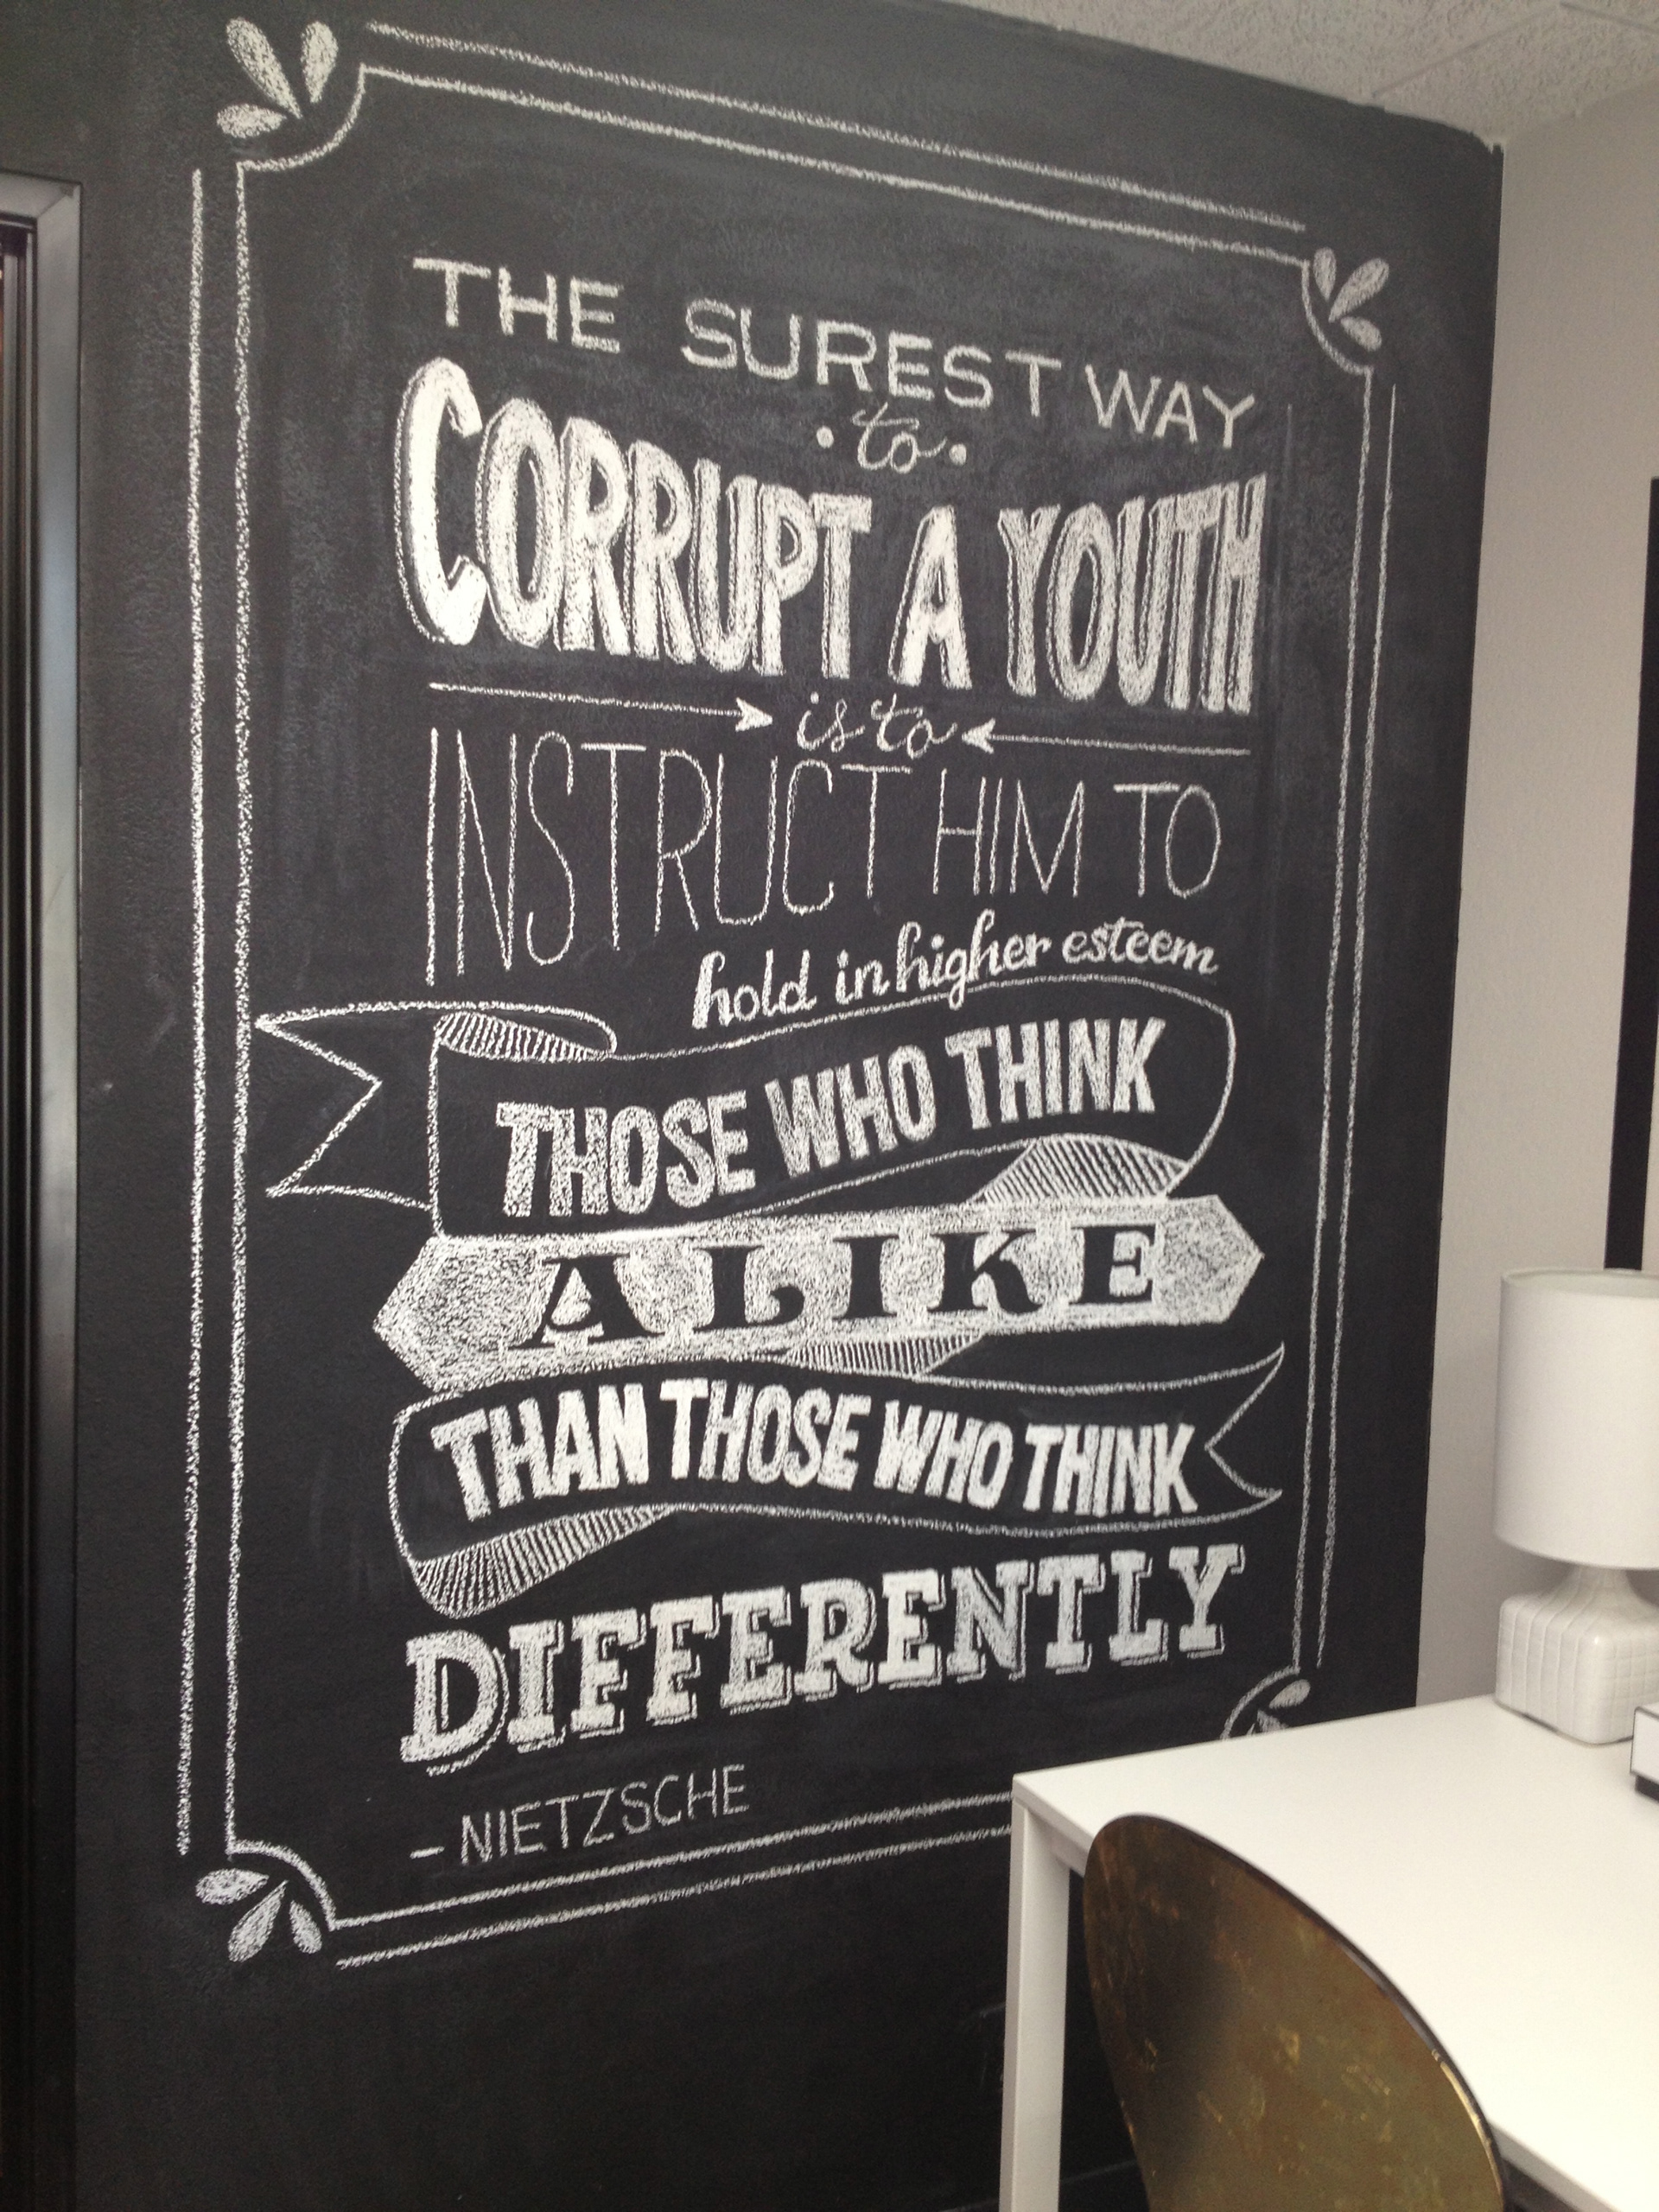 THE SUREST WAY
to
CORRUPT A YOUTH
is to
INSTRUCT HIM TO
hold in higher esteem
THOSE WHO THINK
ALIKE
THAN THOSE WHO THINK
DIFFERENTLY
- NIETZSCHE